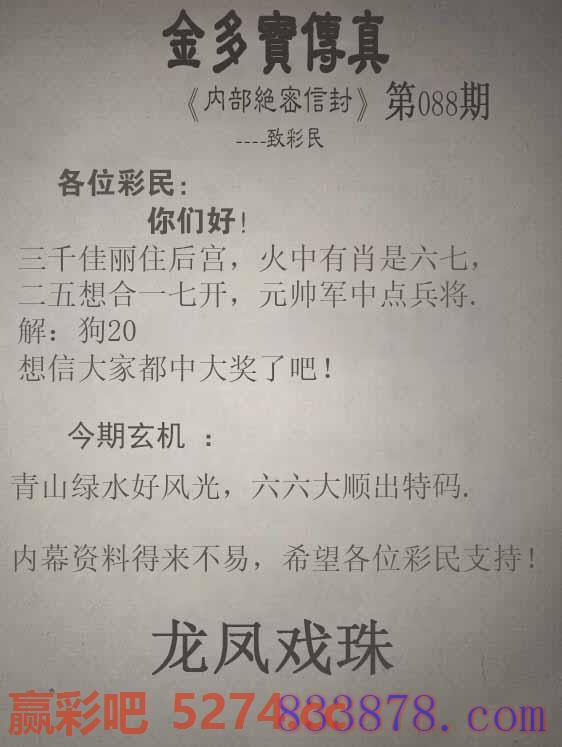 金多寶傳真
《内部絕密信封》第088期
----致彩民
各位彩民:
你们好!
三千佳丽住后宫，火中有肖是六七，
二五想合一七开，元帅军中点兵将.
解：狗20
想信大家都中大奖了吧!
今期玄机 ：
青山绿水好风光，六六大顺出特码.
内幕资料得来不易，希望各位彩民支持!
龙凤戏珠
赢彩吧 5274.cc 833878.com